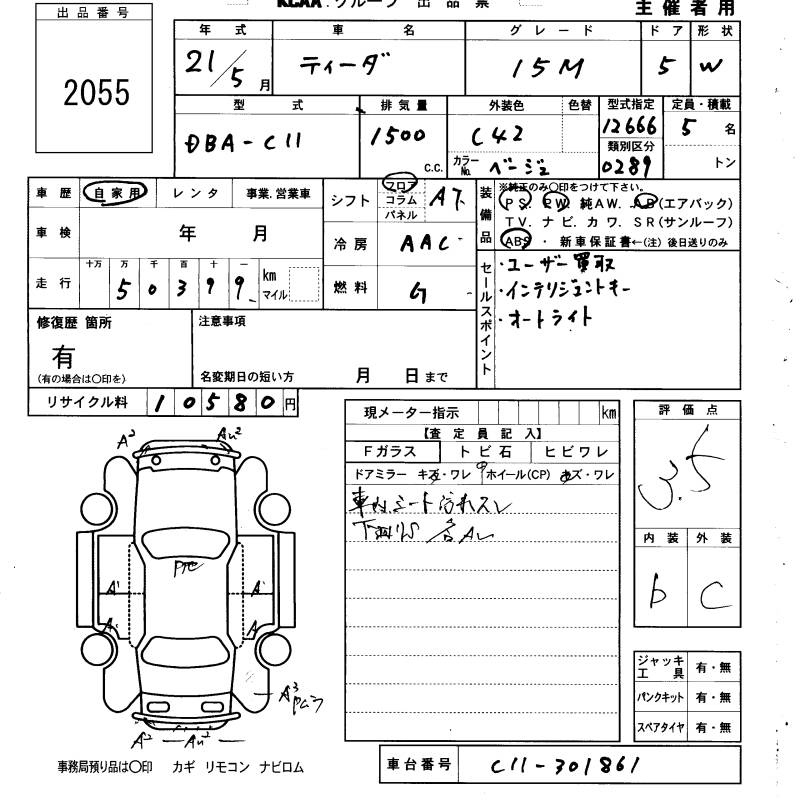 KCAA.グループ 出品票
主催者用
出品番号
2055
年式 車名 グレード ドア 形状
21/5月 ティーダ 15M 5 W
型式 排気量 外装色 色替 型式指定 定員・積載
DBA-C11 1500 c.c. C42 12666 5名
カラーNo. ベージュ 類別区分 0289 トン
車歴 自家用 レンタ 事業.営業車
車検 年 月
走行 十万 万 千 百 十 一
50399 km マイル
シフト フロア コラム パネル AT
冷房 AAC
燃料 G
装備品
※純正のみ〇印をつけて下さい。
PS. PW 純AW. AB(エアバック)
TV. ナビ. カワ. SR(サンルーフ)
ABS ・ 新車保証書←(注) 後日送りのみ
セールスポイント
・ユーザー買取
・インテリジェントキー
・オートライト
修復歴 箇所
有
(有の場合は〇印を)
注意事項
名変期日の短い方 月 日まで
リサイクル料 10580円
現メーター指示 km
【査定員記入】
Fガラス トビ石 ヒビワレ
ドアミラー キズ・ワレ ホイール(CP) キズ・ワレ
車内シート汚れスレ
評価点
3.5
内装 外装
b C
A² AU²
Pけ
A¹ A'
A¹ A
A³
A² AU²
ジャッキ工具 有・無
パンクキット 有・無
スペアタイヤ 有・無
事務局預り品は〇印 カギ リモコン ナビロム
車台番号 C11-301861